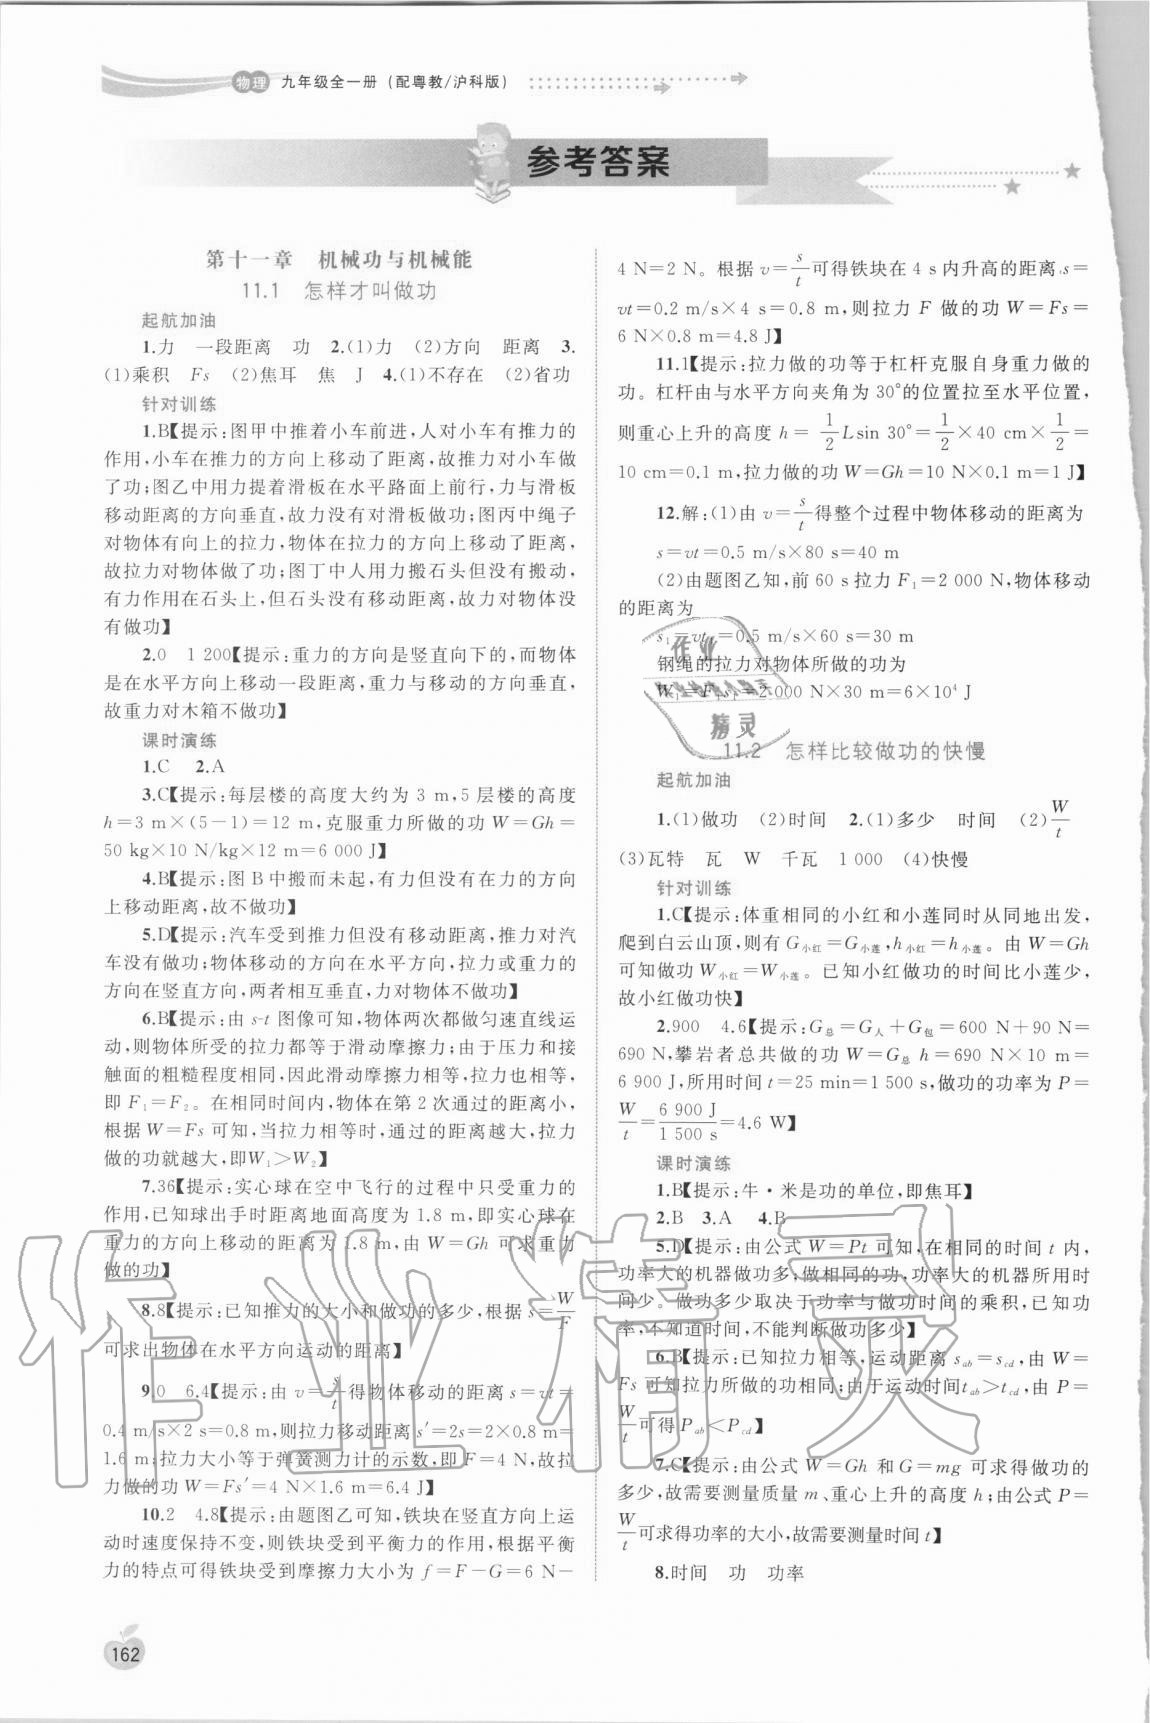 物理 九年级全一册(配粤教/沪科版)
参考答案
第十一章 机械功与机械能
11.1 怎样才叫做功
起航加油
1.力 一段距离 功 2.(1)力 (2)方向 距离 3.
(1)乘积 Fs (2)焦耳 焦 J 4.(1)不存在 (2)省功
针对训练
1.B【提示:图甲中推着小车前进,人对小车有推力的
作用,小车在推力的方向上移动了距离,故推力对小车做
了功;图乙中用力提着滑板在水平路面上前行,力与滑板
移动距离的方向垂直,故力没有对滑板做功;图丙中绳子
对物体有向上的拉力,物体在拉力的方向上移动了距离,
故拉力对物体做了功;图丁中人用力搬石头但没有搬动,
有力作用在石头上,但石头没有移动距离,故力对物体没
有做功】
2.0 1 200【提示:重力的方向是竖直向下的,而物体
是在水平方向上移动一段距离,重力与移动的方向垂直,
故重力对木箱不做功】
课时演练
1.C 2.A
3.C【提示:每层楼的高度大约为 3 m,5 层楼的高度
h=3 m×(5-1)=12 m,克服重力所做的功 W=Gh=
50 kg×10 N/kg×12 m=6 000 J】
4.B【提示:图 B 中搬而未起,有力但没有在力的方向
上移动距离,故不做功】
5.D【提示:汽车受到推力但没有移动距离,推力对汽
车没有做功;物体移动的方向在水平方向,拉力或重力的
方向在竖直方向,两者相互垂直,力对物体不做功】
6.B【提示:由 s-t 图像可知,物体两次都做匀速直线运
动,则物体所受的拉力都等于滑动摩擦力;由于压力和接
触面的粗糙程度相同,因此滑动摩擦力相等,拉力也相等,
即 F₁=F₂。在相同时间内,物体在第 2 次通过的距离小,
根据 W=Fs 可知,当拉力相等时,通过的距离越大,拉力
做的功就越大,即W₁>W₂】
7.36【提示:实心球在空中飞行的过程中只受重力的
作用,已知球出手时距离地面高度为 1.8 m,即实心球在
重力的方向上移动的距离为 1.8 m,由 W=Gh 可求重力
做的功】
8.8【提示:已知推力的大小和做功的多少,根据 s=W/F
可求出物体在水平方向运动的距离】
9.0 6.4【提示:由 v=s/t得物体移动的距离 s=vt=
0.4 m/s×2 s=0.8 m,则拉力移动距离 s′=2s=2×0.8 m=
1.6 m;拉力大小等于弹簧测力计的示数,即 F=4 N,故拉
力做的功 W=Fs′=4 N×1.6 m=6.4 J】
10.2 4.8【提示:由题图乙可知,铁块在竖直方向上运
动时速度保持不变,则铁块受到平衡力的作用,根据平衡
力的特点可得铁块受到摩擦力大小为 f=F-G=6 N-
4 N=2 N。根据 v=s/t可得铁块在 4 s 内升高的距离 s=
vt=0.2 m/s×4 s=0.8 m,则拉力 F 做的功 W=Fs=
6 N×0.8 m=4.8 J】
11.1【提示:拉力做的功等于杠杆克服自身重力做的
功。杠杆由与水平方向夹角为 30°的位置拉至水平位置,
则重心上升的高度 h= 1/2 Lsin 30°=1/2×40 cm×1/2=
10 cm=0.1 m,拉力做的功 W=Gh=10 N×0.1 m=1 J】
12.解:(1)由 v=s/t得整个过程中物体移动的距离为
s=vt=0.5 m/s×80 s=40 m
(2)由题图乙知,前 60 s拉力 F₁=2 000 N,物体移动
的距离为
s₁=vt₁=0.5 m/s×60 s=30 m
钢绳的拉力对物体所做的功为
W₁=F₁s₁=2 000 N×30 m=6×10⁴ J
11.2 怎样比较做功的快慢
起航加油
1.(1)做功 (2)时间 2.(1)多少 时间 (2)W/t
(3)瓦特 瓦 W 千瓦 1 000 (4)快慢
针对训练
1.C【提示:体重相同的小红和小莲同时从同地出发,
爬到白云山顶,则有 G小红=G小莲,h小红=h小莲。由 W=Gh
可知做功 W小红=W小莲。已知小红做功的时间比小莲少,
故小红做功快】
2.900 4.6【提示:G总=G人+G包=600 N+90 N=
690 N,攀岩者总共做的功 W=G总 h=690 N×10 m=
6 900 J,所用时间 t=25 min=1 500 s,做功的功率为 P=
W/t=6 900 J/1 500 s=4.6 W】
课时演练
1.B【提示:牛·米是功的单位,即焦耳】
2.B 3.A 4.B
5.D【提示:由公式 W=Pt 可知,在相同的时间 t 内,
功率大的机器做功多;做相同的功,功率大的机器所用时
间少。做功多少取决于功率与做功时间的乘积,已知功
率,不知道时间,不能判断做功多少】
6.B【提示:已知拉力相等,运动距离 sab=scd,由 W=
Fs 可知拉力所做的功相同;由于运动时间tab>tcd,由 P=
W/t可得 Pab<Pcd】
7.C【提示:由公式 W=Gh 和 G=mg 可求得做功的
多少,故需要测量质量 m、重心上升的高度 h;由公式 P=
W/t可求得功率的大小,故需要测量时间 t】
8.时间 功 功率
162
作业
精灵
作业精灵